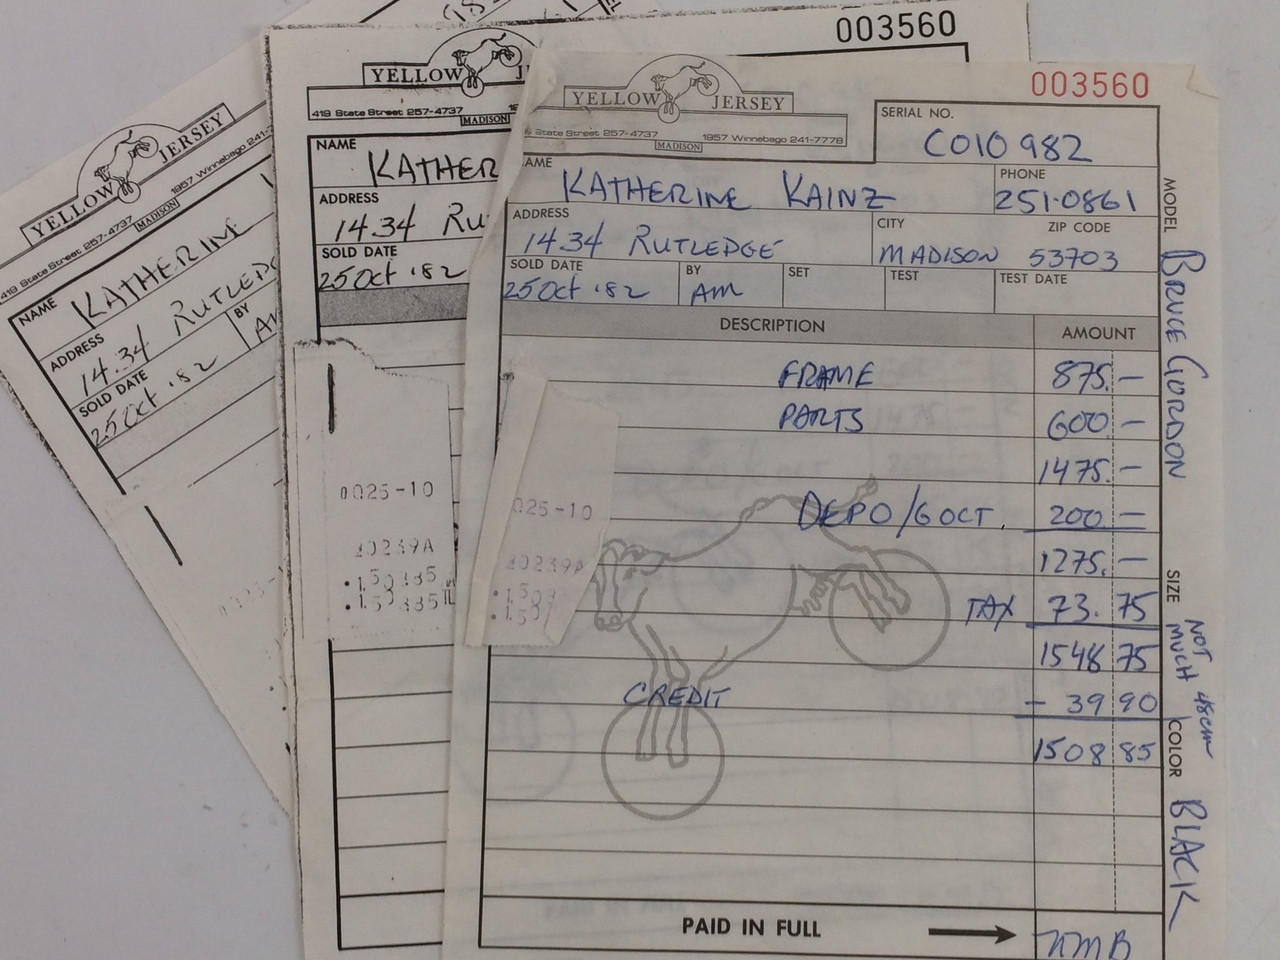 003560
YELLOW JERSEY
419 State Street 257-4737 1957 Winnebago 241-
MADISON
NAME
KATHERINE
ADDRESS
14.34 RUTLEDG
SOLD DATE BY
25 Oct '82 AM
YELLOW J
419 State Street 257-4737
MADISON
NAME
KATHER
ADDRESS
14.34 RU
SOLD DATE
25 Oct '82
0025-10
003560
YELLOW JERSEY
State Street 257-4737 1957 Winnebago 241-7778
MADISON
SERIAL NO.
C010982
AME
KATHERINE KAINZ
PHONE
251-0861
ADDRESS
14.34 RUTLEDGE
CITY ZIP CODE
MADISON 53703
SOLD DATE BY SET TEST TEST DATE
25 Oct '82 AM
DESCRIPTION AMOUNT
FRAME 875. —
PARTS 600. —
1475. —
DEPO/6 OCT. 200 —
1275. —
TAX 73. 75
1548 75
CREDIT - 39 90
1508 85
PAID IN FULL
025-10
MODEL BRUCE GORDON
SIZE NOT MUCH 48cm
COLOR BLACK